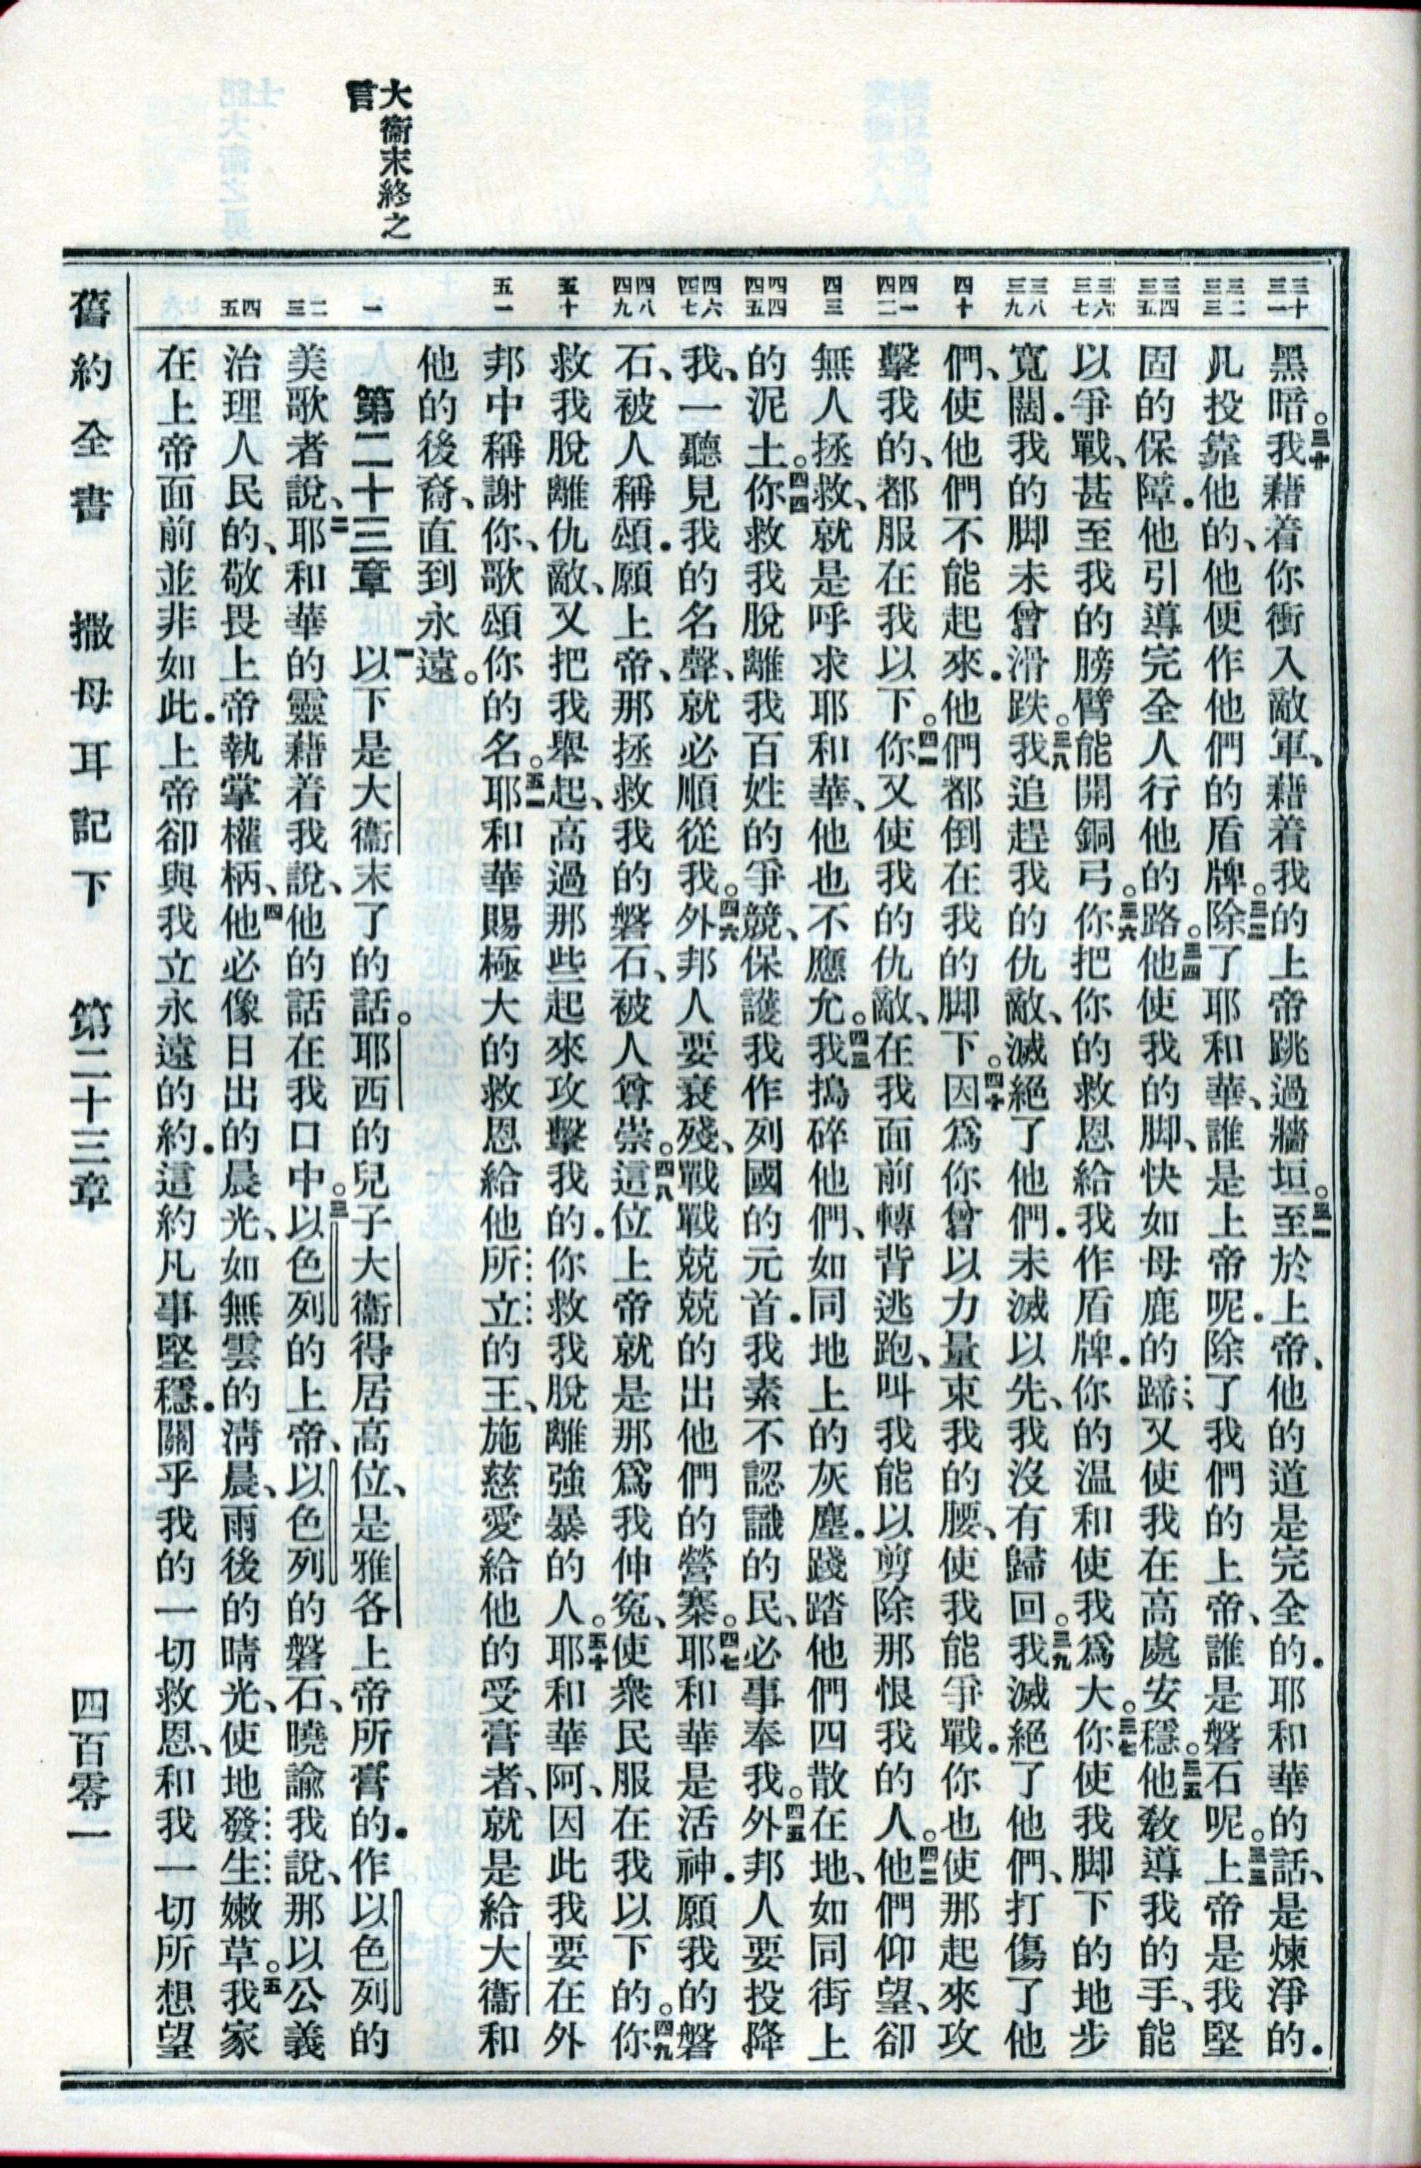 大衞末終之
言
三十 三一
三二 三三
三四 三五
三六 三七
三八 三九
四十
四一 四二
四三
四四 四五
四六 四七
四八 四九
五十
五一
一
二 三
四 五
黑暗。三十我藉着你衝入敵軍、藉着我的上帝跳過牆垣。三一至於上帝、他的道是完全的．耶和華的話、是煉淨的．
凡投靠他的、他便作他們的盾牌。三二除了耶和華、誰是上帝呢．除了我們的上帝、誰是磐石呢。三三上帝是我堅
固的保障．他引導完全人行他的路。三四他使我的脚、快如母鹿的蹄又使我在高處安穩。三五他敎導我的手、能
以爭戰、甚至我的膀臂能開銅弓。三六你把你的救恩給我作盾牌．你的温和使我爲大。三七你使我脚下的地步
寬闊．我的脚未曾滑跌。三八我追趕我的仇敵、滅絕了他們．未滅以先、我沒有歸回。三九我滅絕了他們、打傷了他
們、使他們不能起來．他們都倒在我的脚下。四十因爲你曾以力量束我的腰、使我能爭戰．你也使那起來攻
擊我的、都服在我以下。四一你又使我的仇敵、在我面前轉背逃跑、叫我能以剪除那恨我的人。四二他們仰望、卻
無人拯救、就是呼求耶和華、他也不應允。四三我搗碎他們、如同地上的灰塵．踐踏他們四散在地、如同街上
的泥土。四四你救我脫離我百姓的爭競、保護我作列國的元首．我素不認識的民、必事奉我。四五外邦人要投降
我、一聽見我的名聲、就必順從我。四六外邦人要衰殘、戰戰兢兢的出他們的營寨。四七耶和華是活神．願我的磐
石、被人稱頌．願上帝、那拯救我的磐石、被人尊崇。四八這位上帝就是那爲我伸冤、使衆民服在我以下的。四九你
救我脫離仇敵、又把我舉起、高過那些起來攻擊我的．你救我脫離強暴的人。五十耶和華阿、因此我要在外
邦中稱謝你、歌頌你的名。五一耶和華賜極大的救恩給他所立的王、施慈愛給他的受膏者、就是給大衞和
他的後裔、直到永遠。
第二十三章 一以下是大衞末了的話。耶西的兒子大衞得居高位、是雅各上帝所膏的．作以色列的
美歌者說、二耶和華的靈藉着我說、他的話在我口中。三以色列的上帝、以色列的磐石、曉諭我說、那以公義
治理人民的、敬畏上帝執掌權柄、四他必像日出的晨光、如無雲的淸晨、雨後的晴光、使地發生嫩草。五我家
在上帝面前並非如此．上帝卻與我立永遠的約．這約凡事堅穩．關乎我的一切救恩、和我一切所想望
舊約全書 撒母耳記下 第二十三章 四百零一